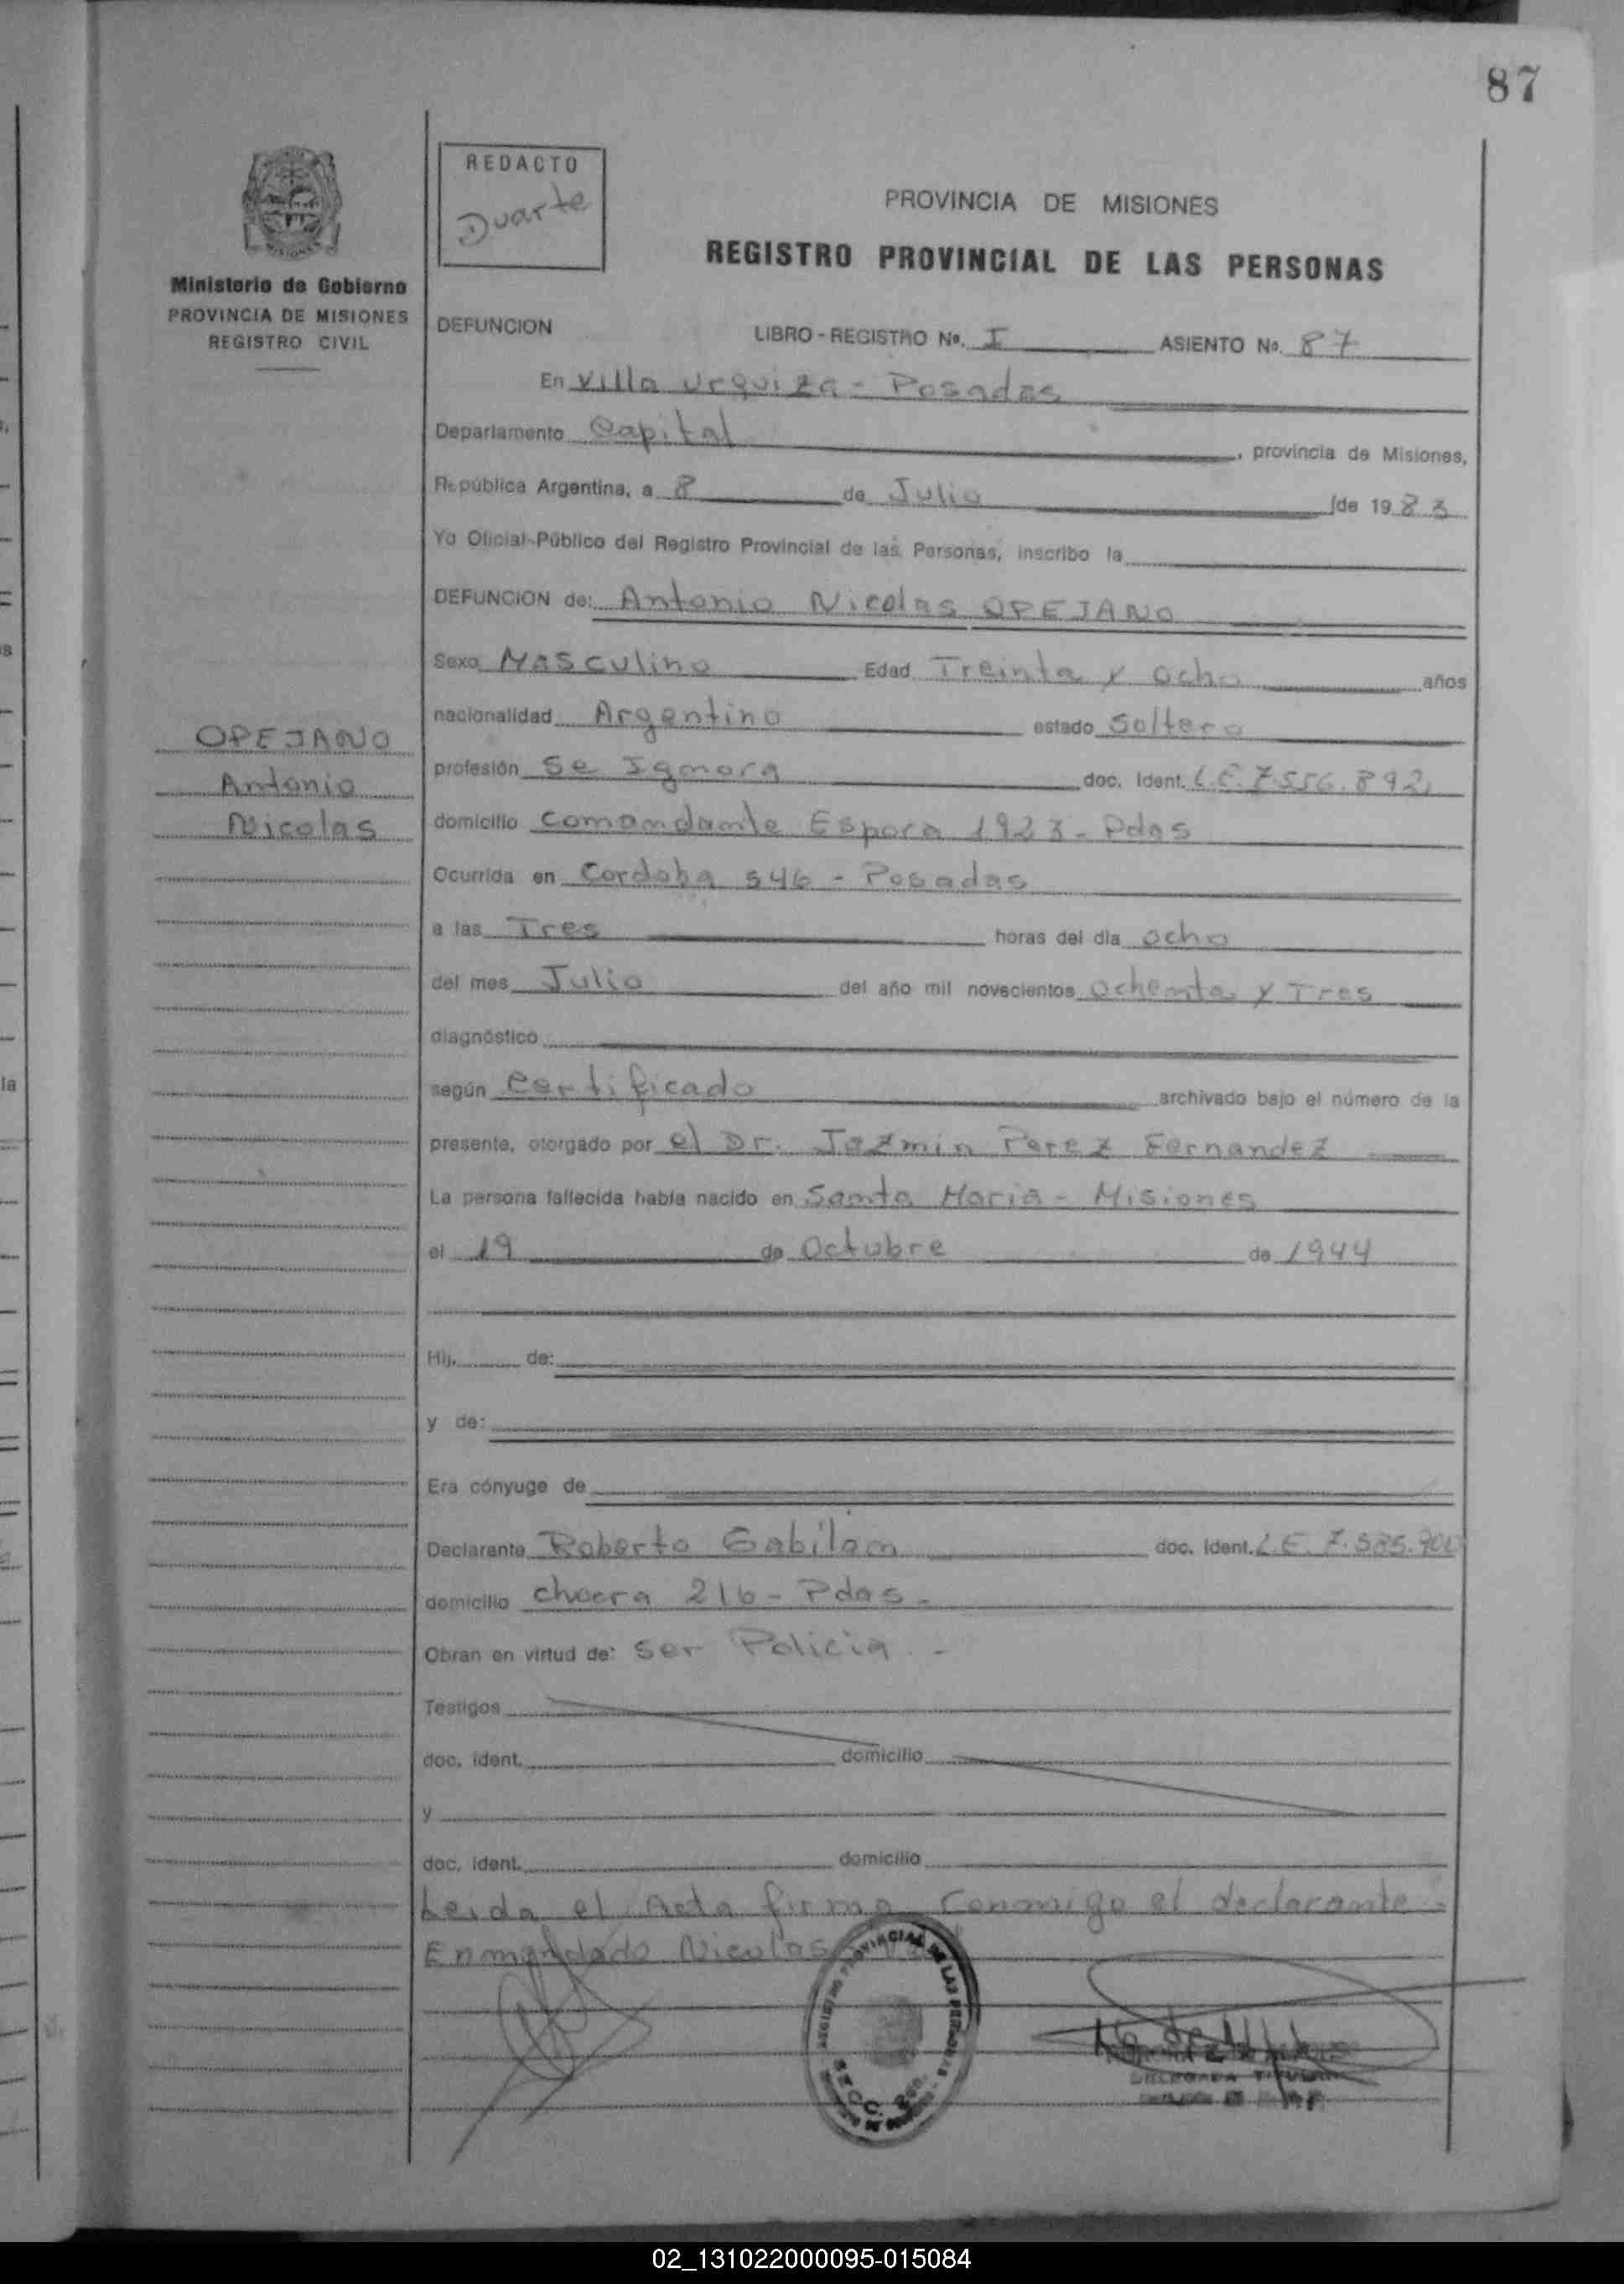 87
REDACTO
Duarte
PROVINCIA DE MISIONES
REGISTRO PROVINCIAL DE LAS PERSONAS
Ministerio de Gobierno
PROVINCIA DE MISIONES
REGISTRO CIVIL
DEFUNCION LIBRO - REGISTRO No. I ASIENTO No. 87
En Villa Urquiza - Posadas
Departamento Capital, provincia de Misiones,
República Argentina, a 8 de Julio de 1983
Yo Oficial Público del Registro Provincial de las Personas, inscribo la
DEFUNCION de: Antonio Nicolas OPEJANO
Sexo Masculino Edad Treinta y Ocho años
nacionalidad Argentino estado Soltero
OPEJANO
Antonio
Nicolas
profesión Se Ignora doc. Ident. L.E. 7.556.892
domicilio Comandante Espora 1923 - Pdas
Ocurrida en Cordoba 546 - Posadas
a las Tres horas del día ocho
del mes Julio del año mil novecientos Ochenta y Tres
diagnóstico
según Certificado archivado bajo el número de la
presente, otorgado por el Dr. Jazmin Perez Fernandez
La persona fallecida había nacido en Santa Maria - Misiones
el 19 de Octubre de 1944
Hij. de:
y de:
Era cónyuge de
Declarante Roberto Gabilan doc. Ident. L.E. 7.585.900
domicilio chacra 216 - Pdas -
Obran en virtud de: Ser Policia . -
Testigos
doc. ident. domicilio
y
doc. ident. domicilio
Leida el Acta firma Conmigo el declarante -
Enmendado Nicolas
REGISTRO PROVINCIAL DE LAS PERSONAS
SECC.
DELEGADA TITULAR
02_131022000095-015084